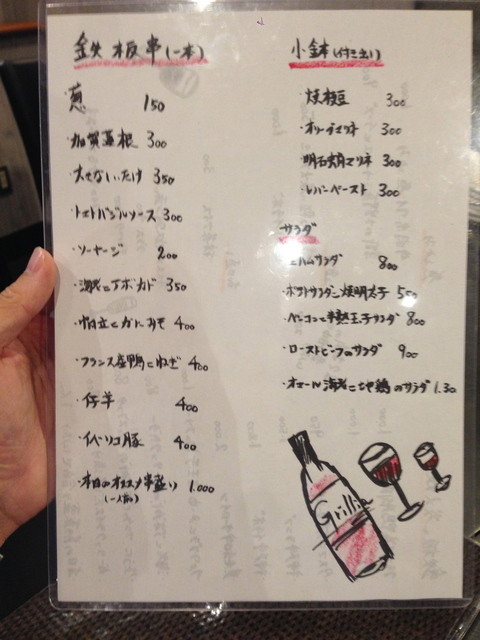 鉄板串(一本)
葱 150
・加賀蓮根 300
・大せないたけ 350
・トマトバジルソース 300
・ソーセージ 200
・海老とアボカド 350
・帆立とカニみそ 400
・フランス産鴨とねぎ 400
・仔羊 400
・イベリコ豚 400
・本日のオススメ串盛り 1.000
(一人前)
小鉢(付き出し)
・焼枝豆 300
・オリーブマリネ 300
・明石蛸マリネ 300
・レバーペースト 300
サラダ
ハムサラダ 800
・ポテトサラダと焼明太子 500
・ベーコンと半熟玉子サラダ 800
・ローストビーフのサラダ 900
・オマール海老と地鶏のサラダ 1.30
Grillia